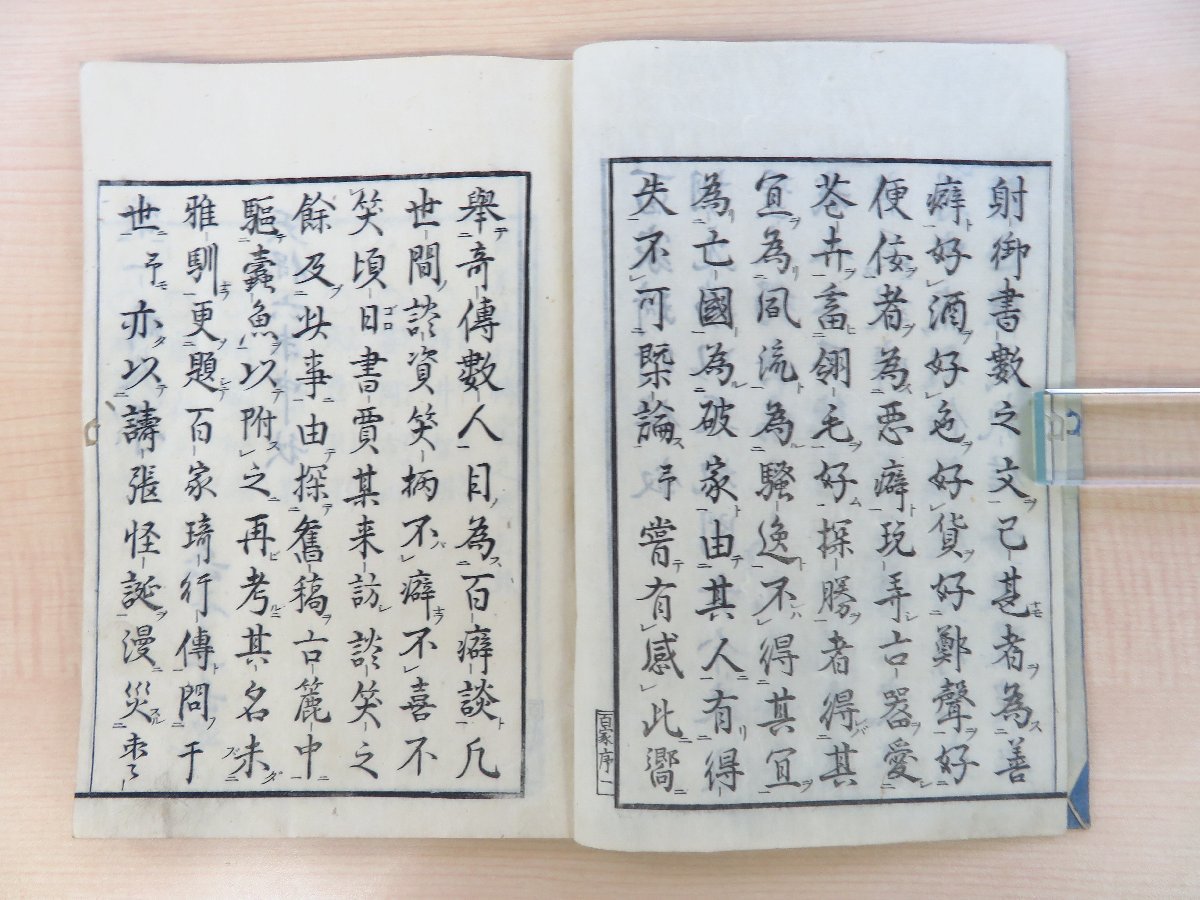 射御書數之文已甚者為善
癖好酒好色好貨好鄭聲好
便佞者為惡癖玩弄古器愛
花卉畜翎毛好探勝者得其
宜為風流為騷逸不得其宜
為亡國為破家由其人有得
失不可槩論予嘗有感此嚮
百家序 一
舉奇傳數人目為百癖談凡
世間談資笑柄不癖不喜不
笑頃日書賈某来訪談笑之
餘及此事由探舊稿古簏中
驅蠹魚以附之再考其名未
雅馴更題百家琦行傳問于
世予亦以譸張怪誕漫災枣